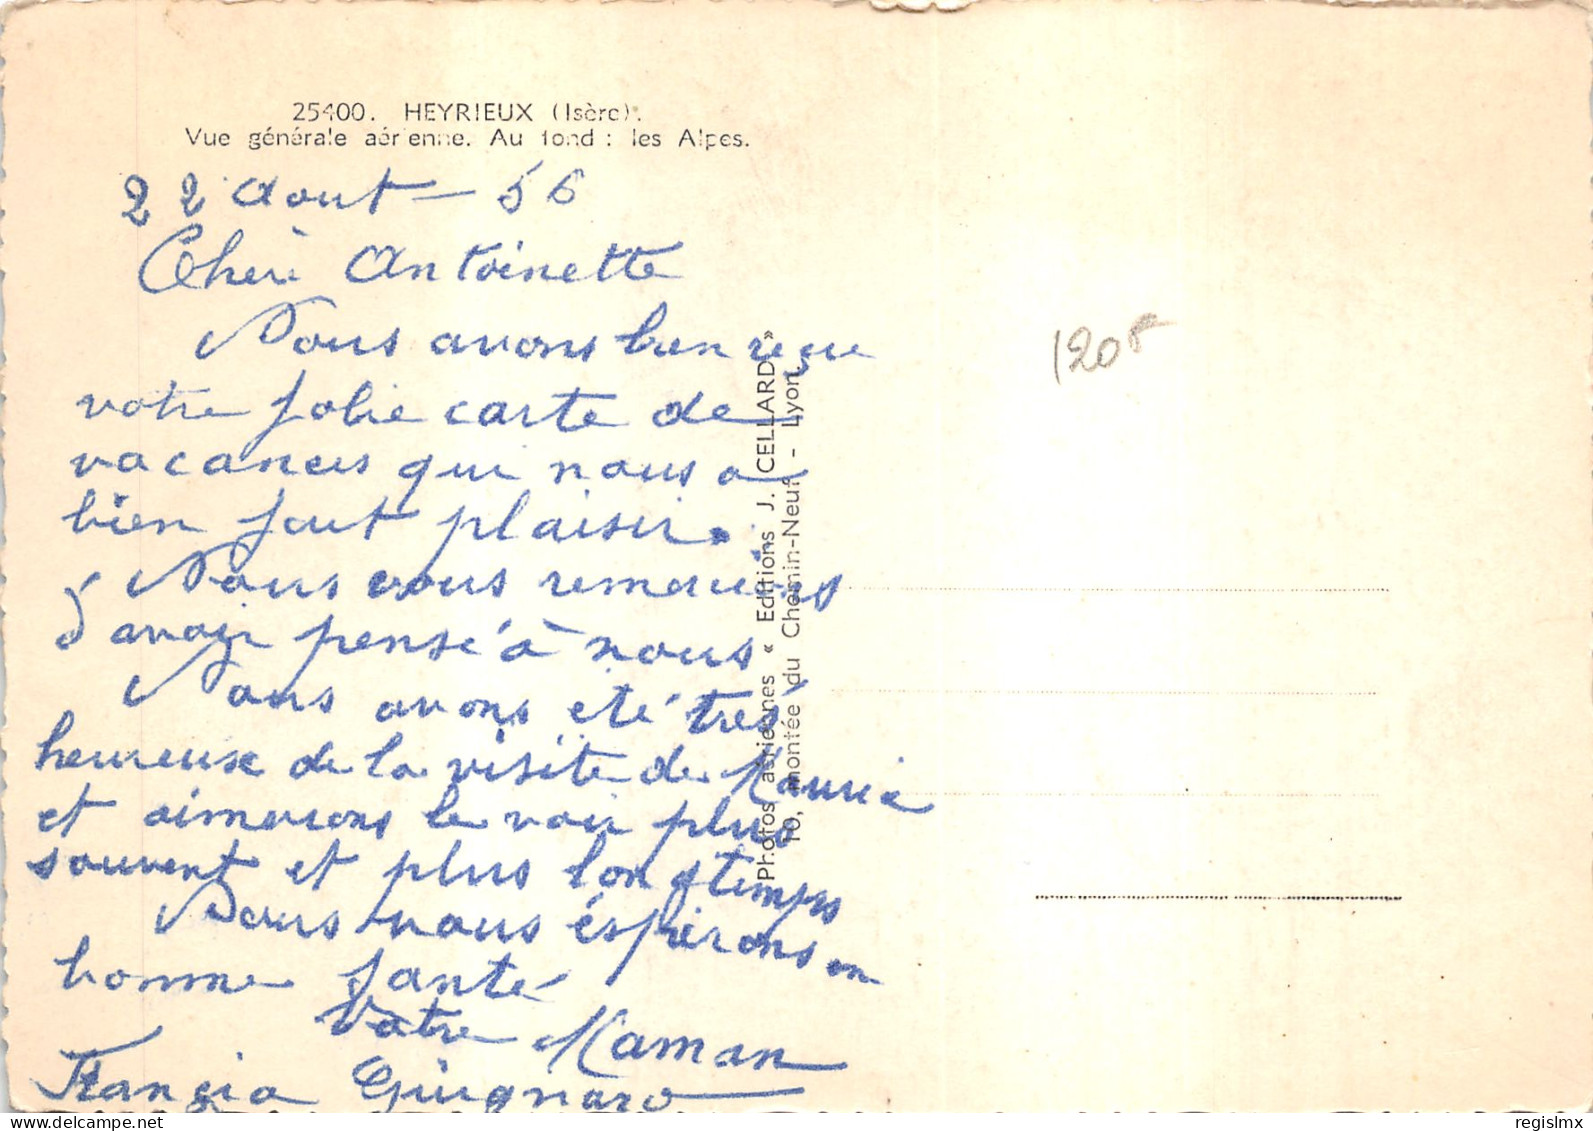 25400. HEYRIEUX (Isère).
Vue générale aérienne. Au fond : les Alpes.
22 Aout - 56
Chèri Antoinette
Nous avons bien reçue
votre jolie carte de
vacances que nous a
bien fait plaisir.
Nous vous remercions
d'avoir pensé à nous
Nous avons été très
heureuse de la visite de Maurice
et aimerons le voir plus
souvent et plus longtemps
Nous vous éspérons en
bonne santé
Votre Maman
Guignard
120F
Photos aériennes « Editions J. CELLARD »
10, montée du Chemin-Neuf - Lyon
regislmx